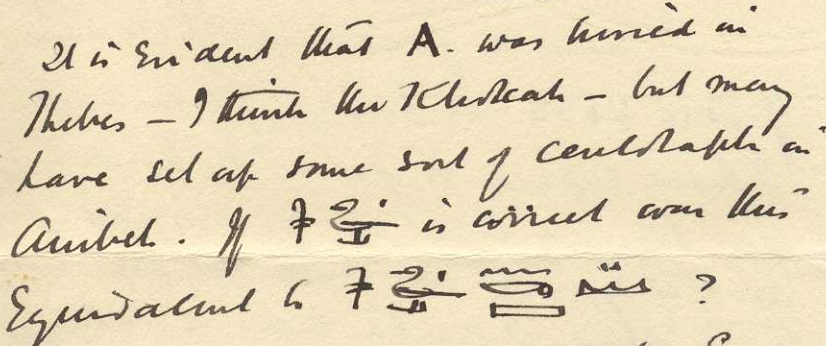 It is Evident that A. was buried in
Thebes – I think the Khokah – but may
have set up some sort of cenotaph in
Anibeh. If is correct was this
Equivalent to ?